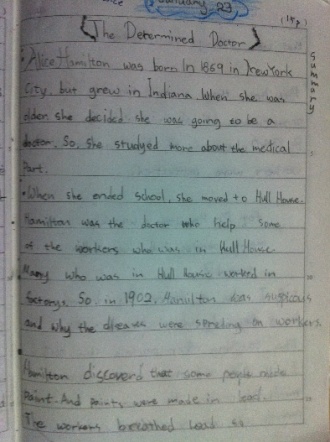 January 23
(14p)
{The Determined Doctor}
Summary
• Alice Hamilton was born in 1869 in New York
City, but grew in Indiana. When she was
older she decided she was going to be a
doctor. So, she studied more about the medical
part.
• When she ended school, she moved to Hull House.
Hamilton was the doctor who help some
of the workers who was in Hull House.
Many who was in Hull House worked in
factorys. So in 1902, Hamilton was
and why the were on workers.
Hamilton discoverd that some people made
paint. And paints were made in lead.
The workers breathed lead so